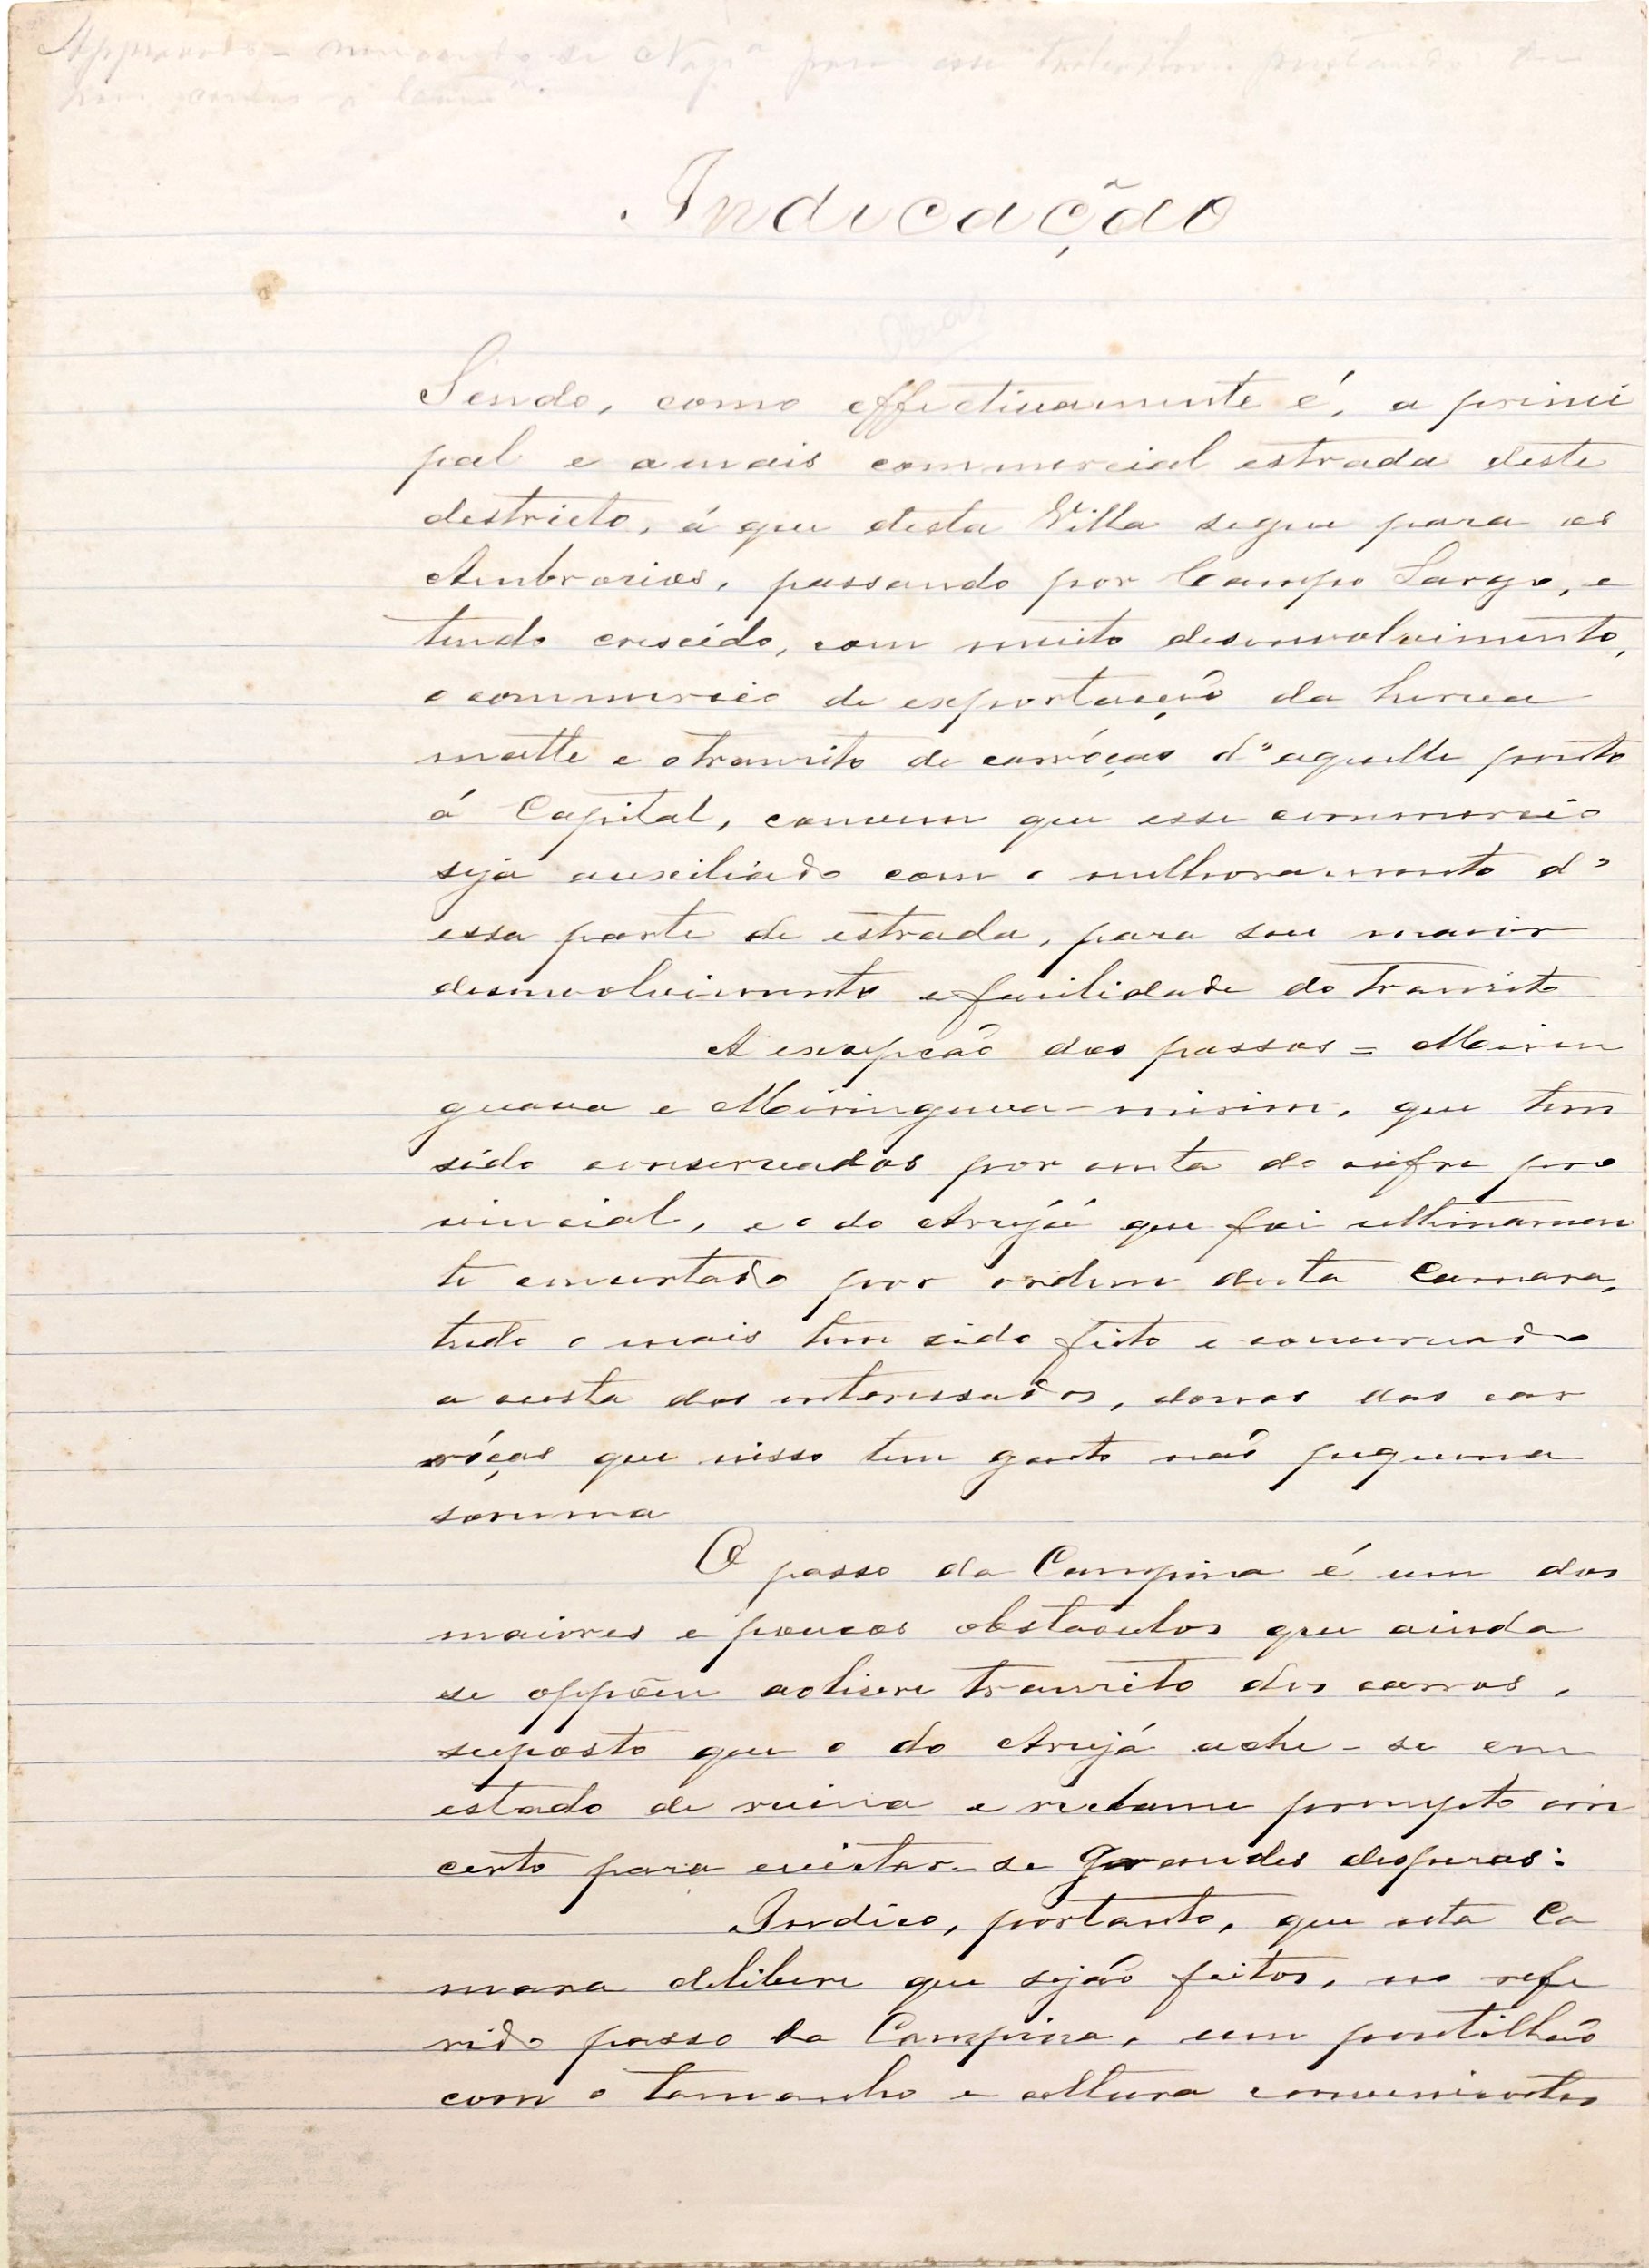 Approvado - para esse
Indicação
Obras
Sendo, como effectivamente é, a princi
pal e a mais commercial estrada deste
destricto, á que desta Villa segue para os
Ambrosios, passando por Campo Largo, e
tendo crescido, com muito desenvolvimento,
o commercio de exportação da herva
matte e o transito de carróças d'aquelle ponto
á Capital, convem que esse commercio
seja auxiliado com o melhoramento d'
essa parte de estrada, para seu maior
desenvolvimento e facilidade do transito
A excepção dos passos = Mirin
guava e Miringuava-mirim, que tem
sido conservados por conta do cofre pro
vincial, e o do Arujá que foi ultimamen
te encurtado por ordem desta Camara,
tudo o mais tem sido feito e conservado
a custa dos interessados, donos das car
róças que nisso tem gasto não pequena
somma
O passo da Campina é um dos
maiores e poucos obstaculos que ainda
se oppõem ao livre transito dos carros,
suposto que o do Arujá ache-se em
estado de ruina e reclame prompto con
certo para evitar-se grandes despezas:
Indico, portanto, que esta Ca
mara delibere que sejão feitos, no refe
rido passo da Campina, um pontilhão
com o tamanho e altura convenientes